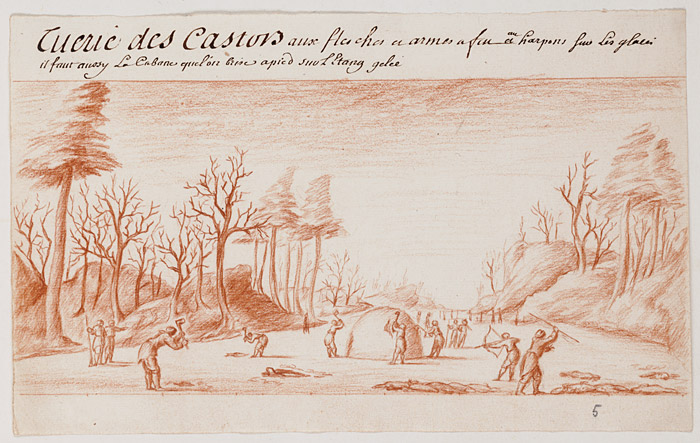 Tuerie des Castors aux flesches et armes a feu et au harpons sur les glaces
il faut aussy La Cabane quel'on brise a pied sur L'Etang gelée
5